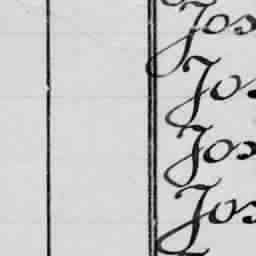 Jos
Jos
Jos
Jos